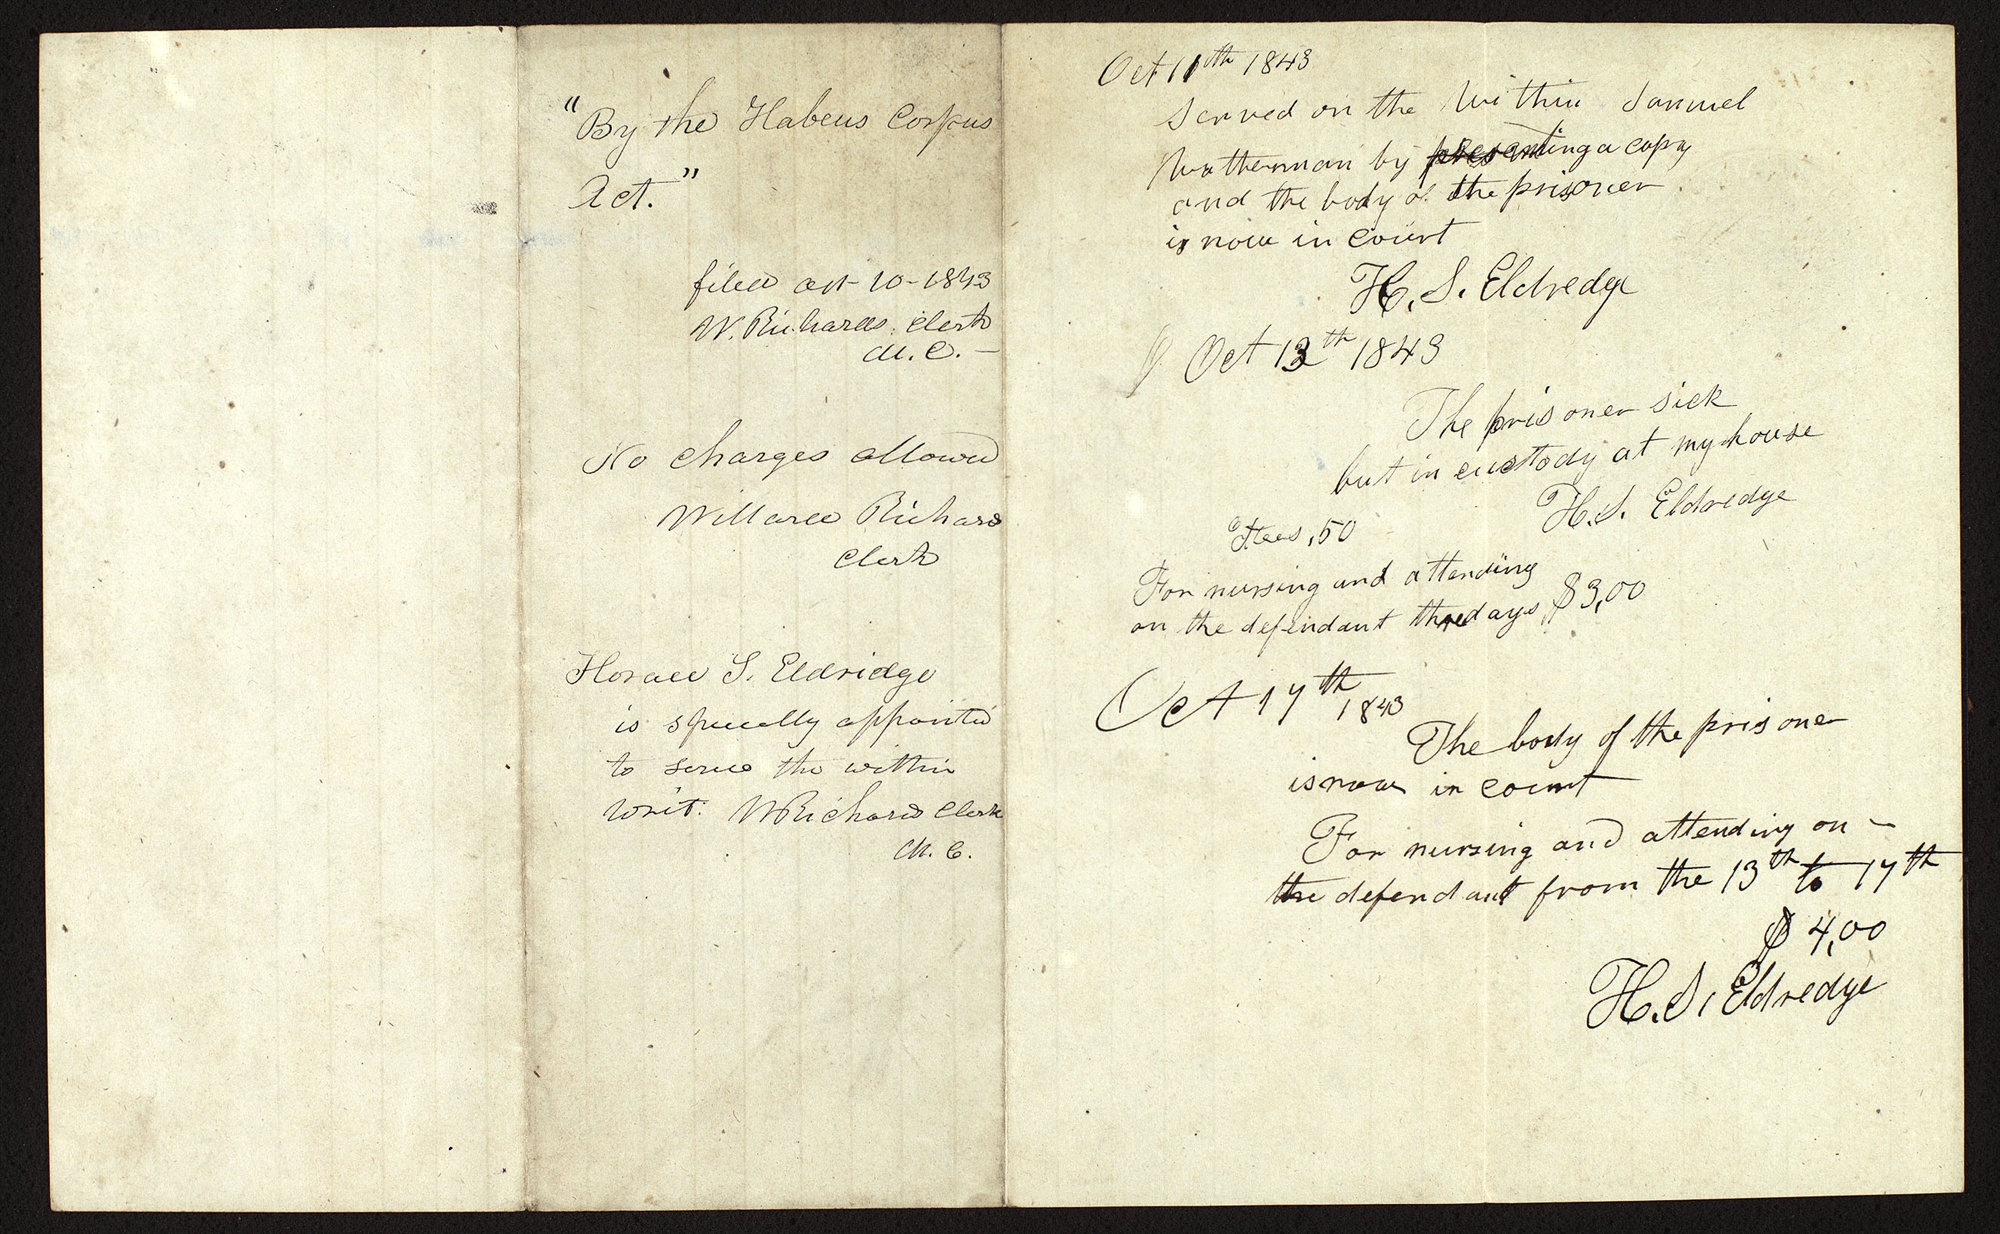 "By the Habeus Corpus
Act."
filed Oct- 10- 1843
W. Richards, Clerk
M. C. —
No charges allowed
Willard Richards
Clerk
Horace S. Eldridge
is specially appointed
to serve the within
writ. W Richards Clerk
M. C.
Oct 11th 1843
Served on the within Samuel
Watherman by presenting a copy
and the body of the prisoner
is now in court
H. S. Eldredge
Oct 13th 1843
The prisoner sick
but in custody at my house
H. S. Eldredge
Fees ,50
For nursing and attending
on the defendant three days $3,00
Oct 17th
1843
The body of the prisoner
is now in court
For nursing and attending on —
the defendant from the 13th to 17th
$4,00
H. S. Eldredge